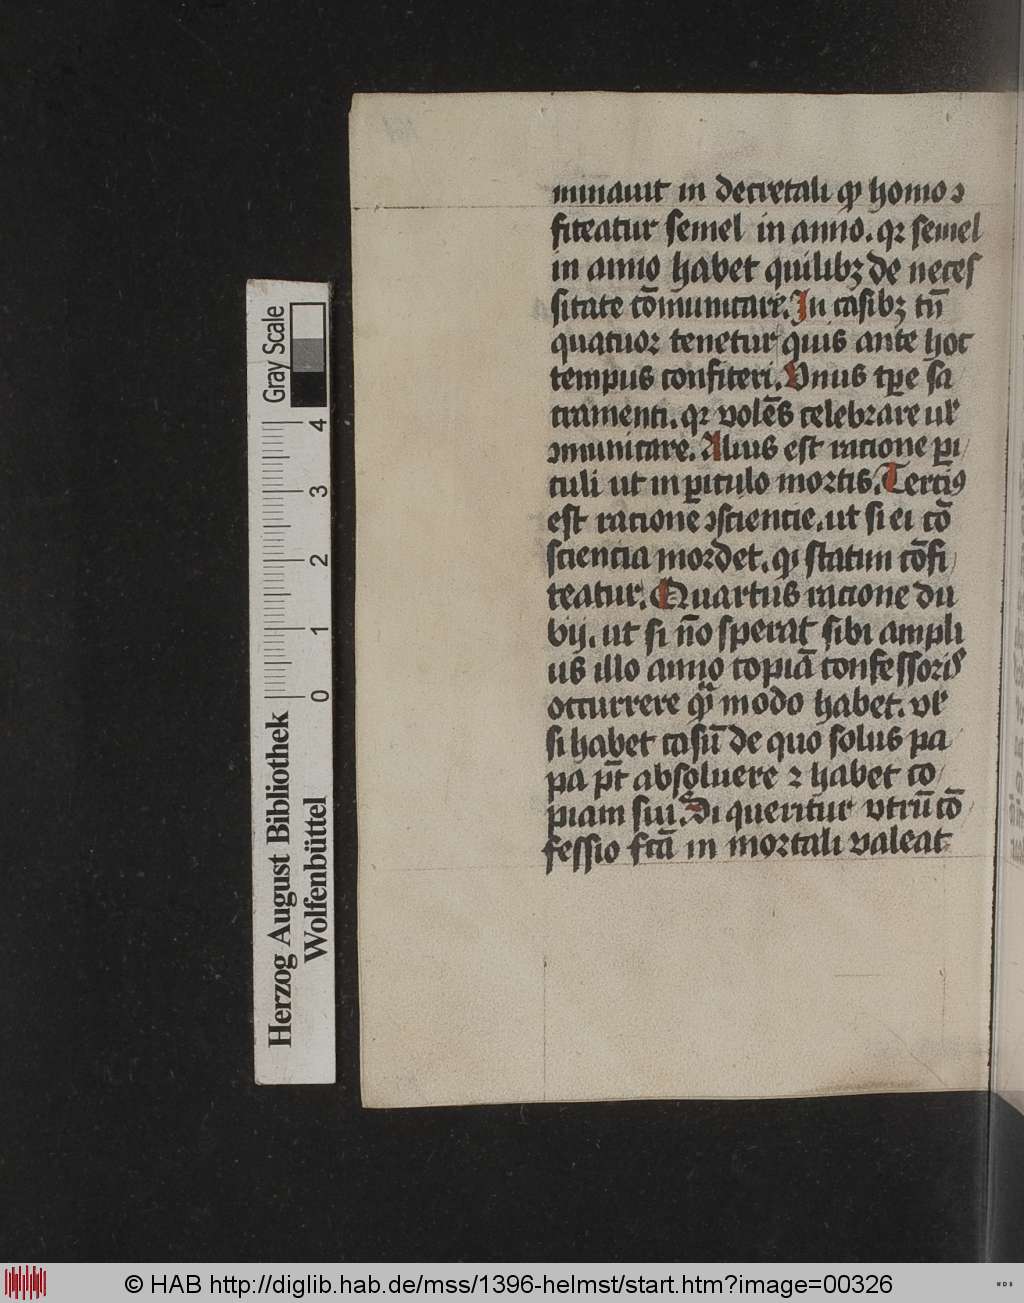 minauit in decretali ꝙ homo ꝯ
fiteatur semel in anno. qꝛ semel
in anno habet quilibꝫ de neces
sitate cōmunicare. In casibꝫ tn̄
quatuoꝛ tenetur quis ante hoc
tempus confiteri. Unus tꝑe sa
cramenti. qꝛ volēs celebꝛare ul̛
ꝯmunicare. Alius est racione ꝑi
culi ut in ꝑiculo moꝛtis. Terciꝰ
est racione ꝯsciencie. ut si ei cō
sciencia moꝛdet. qͥ statim cōfi
teatur. Quartus racione du
bij. ut si nō sperat sibi ampli
us illo anno copiā confessoꝛis
occurrere qͣ modo habet. vl̛
si habet casū de quo solus pa
pa pt̄ absoluere ⁊ habet co
piam sui. Di queritur vtrū cō
fessio fc̄a in moꝛtali valeat
Gray Scale
4
3
2
1
0
Herzog August Bibliothek
Wolfenbüttel
© HAB http://diglib.hab.de/mss/1396-helmst/start.htm?image=00326